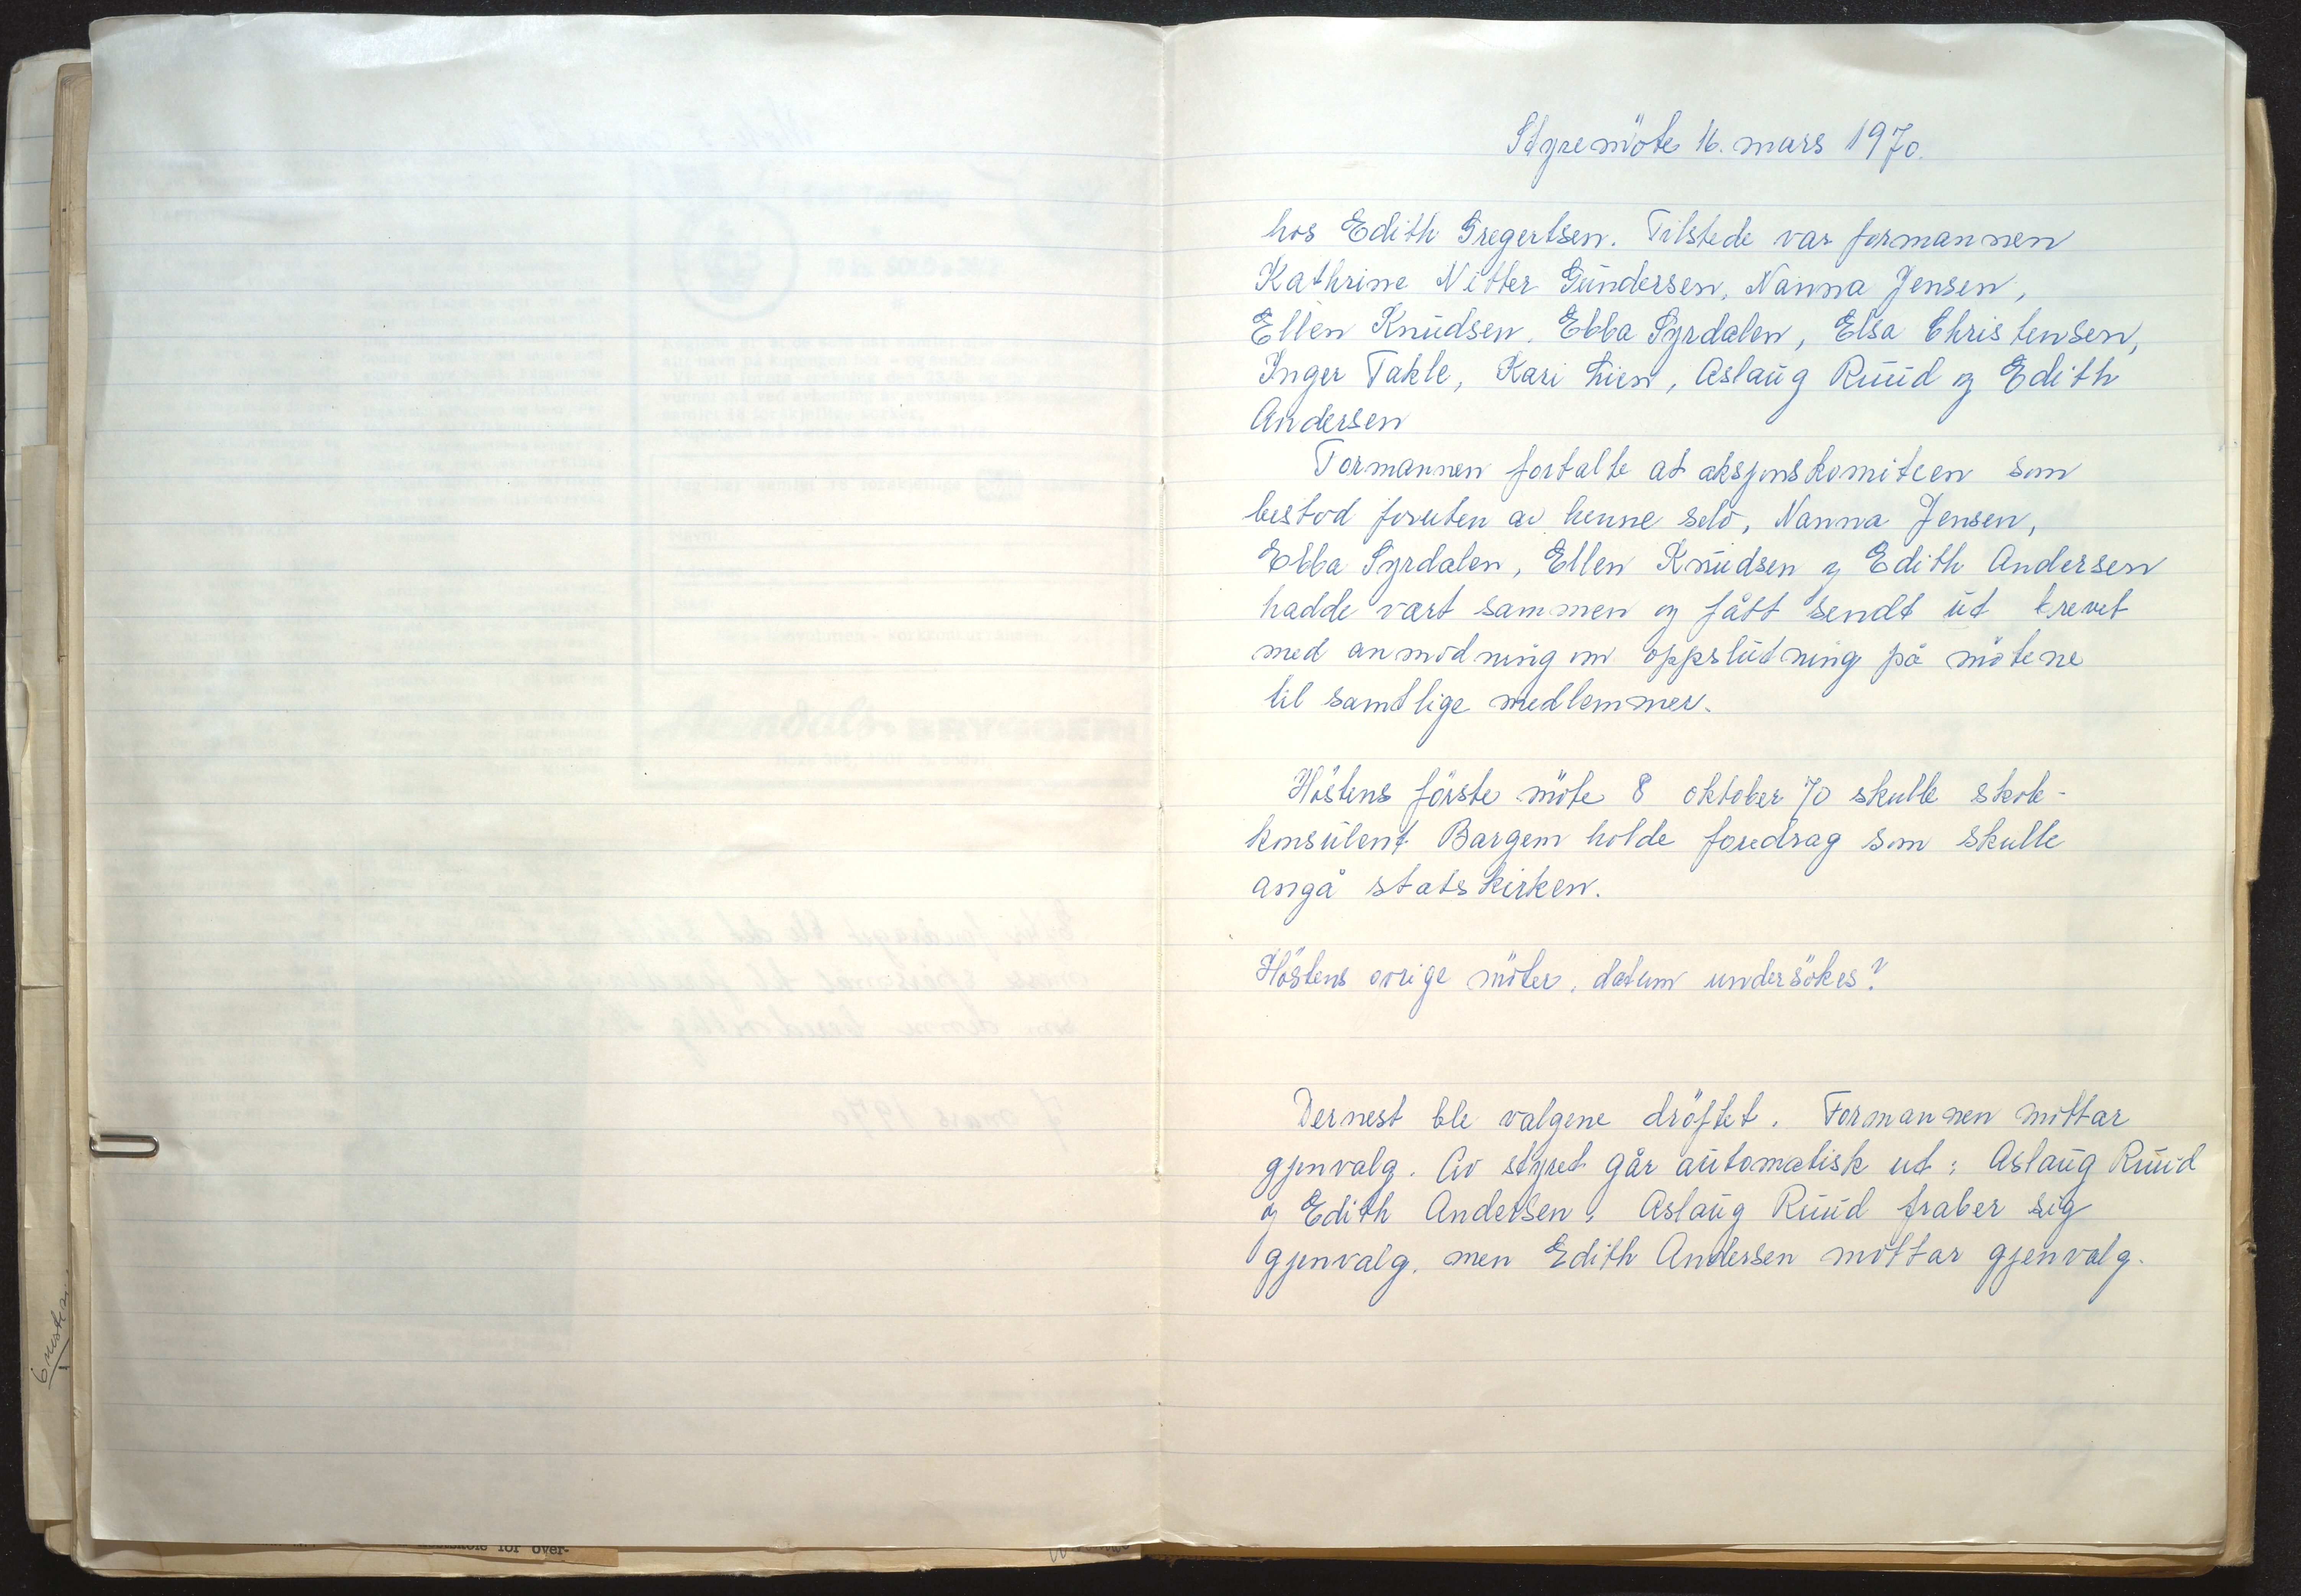 Styremöte 16. mars 1970.
hos Edith Gregertsen. Tilstede var formannen
Kathrine Nitter Gundersen, Nanna Jensen,
Ellen Knudsen, Ebba Syrdalen, Elsa Christensen,
Inger Takle, Kari Lien, Aslaug Ruud og Edith
Andersen
Formannen fortalte at aksjonskomiteen som
bestod foruten av henne selv, Nanna Jensen,
Ebba Syrdalen, Ellen Knudsen og Edith Andersen
hadde vært sammen og fått sendt ut brevet
med anmodning om oppslutning på mötene
til samtlige medlemmer.
Höstens förste möte 8 oktober 70 skulle skole-
konsulent Bargem holde foredrag som skulle
angå statskirken.
Höstens övrige möter, datum undersökes?
Dernest ble valgene dröftet. Formannen mottar
gjenvalg. Av styret går automatisk ut: Aslaug Ruud
og Edith Andersen, Aslaug Ruud fraber sig
gjenvalg, men Edith Andersen mottar gjenvalg.